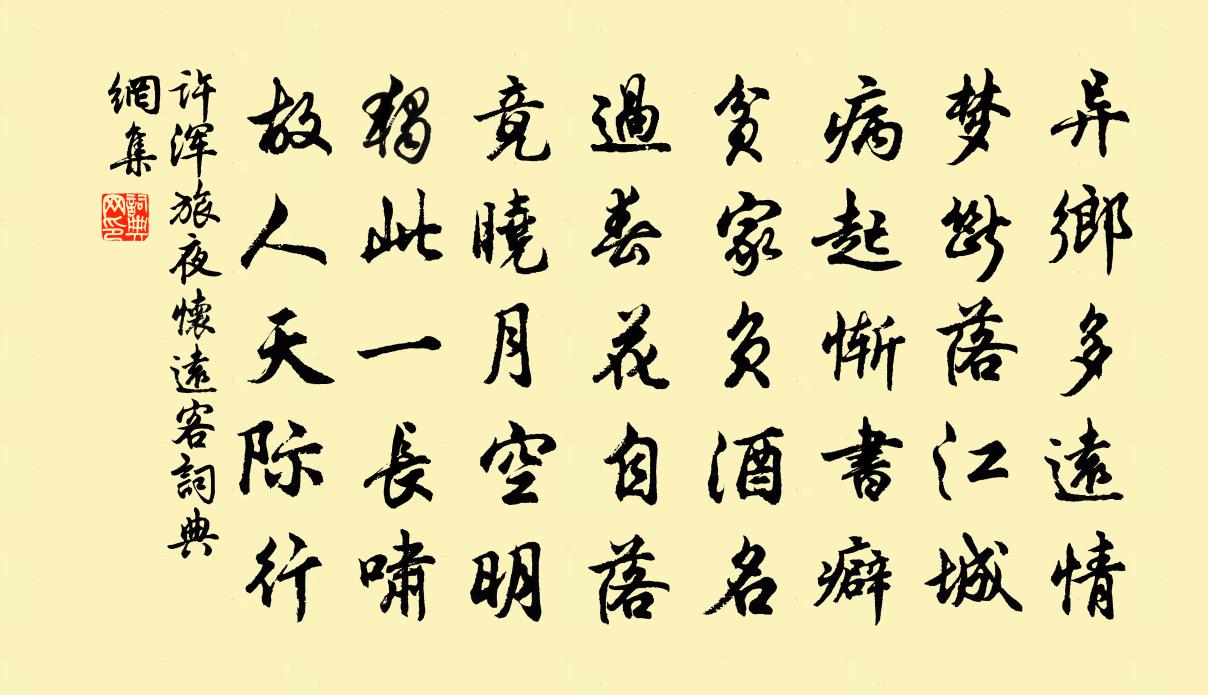 异鄉多遠情
梦斷落江城
病起慚書癖
貧家負酒名
過春花自落
竟曉月空明
獨此一長嘯
故人天际行
許渾旅夜懷遠客詞典
網集
詞典网印